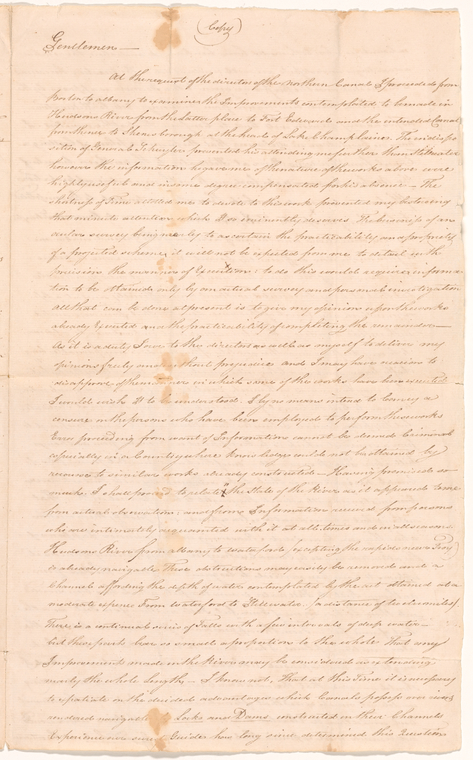 (Copy)
Gentlemen —
At the request of the directors of the Northern Canal I proceeded from
to albany to examine the Improvements contemplated to be made in
Hudsons River from the latter place to Fort Edward and the intended Canal
from thence to Skenesborough at the head of Lake Champlain. The indispo-
sition of General Schuyler prevented his attending me further than Stillwater
however the information he gave me of the nature of the works above were
so plenteful and in some degree compensated for his absence — The
shortness of Time allotted me to devote to this work prevented my bestowing
that minute attention which it so deservedly deserves. The business of
survey being merely to ascertain the practicability and propriety
of a projected scheme, it will not be expected from me to detail with
precision the manner of Execution; to do this would require informa-
tion to be attained only by an actual survey and personal investigation
all that can be done at present is to give my opinion upon the works
already Executed and the practicability of compleating the remainder —
As it is a duty I owe to the directors as well as myself to deliver my
opinions freely and without prejudice and I may have reasons to
disapprove of the manner in which some of the works have been executed —
I would wish It to be understood I by no means intend to convey a
censure on the persons who have been employed to perform the works
Errors proceeding from want of Information cannot be deemed Criminal
especially in a Country where knowledge could not be attained by
recourse to similar works already constructed — Having premised so
much, I shall proceed to relate the State of the River as it appeared to me
from actual observation; and from Information received from persons
who are intimately acquainted with it at all times and in all seasons
Hudsons River from albany to waterford (excepting the rapids near Troy)
is already navigable These obstructions may easily be removed and a
Channel affording the depth of water contemplated by the act attained at a
moderate expence From Waterford to Stillwater (a distance of twelve miles)
There is a continual series of Falls with a few intervals of deep water —
but these parts bear so small a proportion to the whole That any
Improvements made in the River may be considered as extending
nearly the whole length — I know not, That at this Time it is necessary
to expatiate on the decided advantages which Canals possess over rivers
rendered navigable by Locks and Dams constructed in their Channels
Experience our surest Guide has long since determined this Question